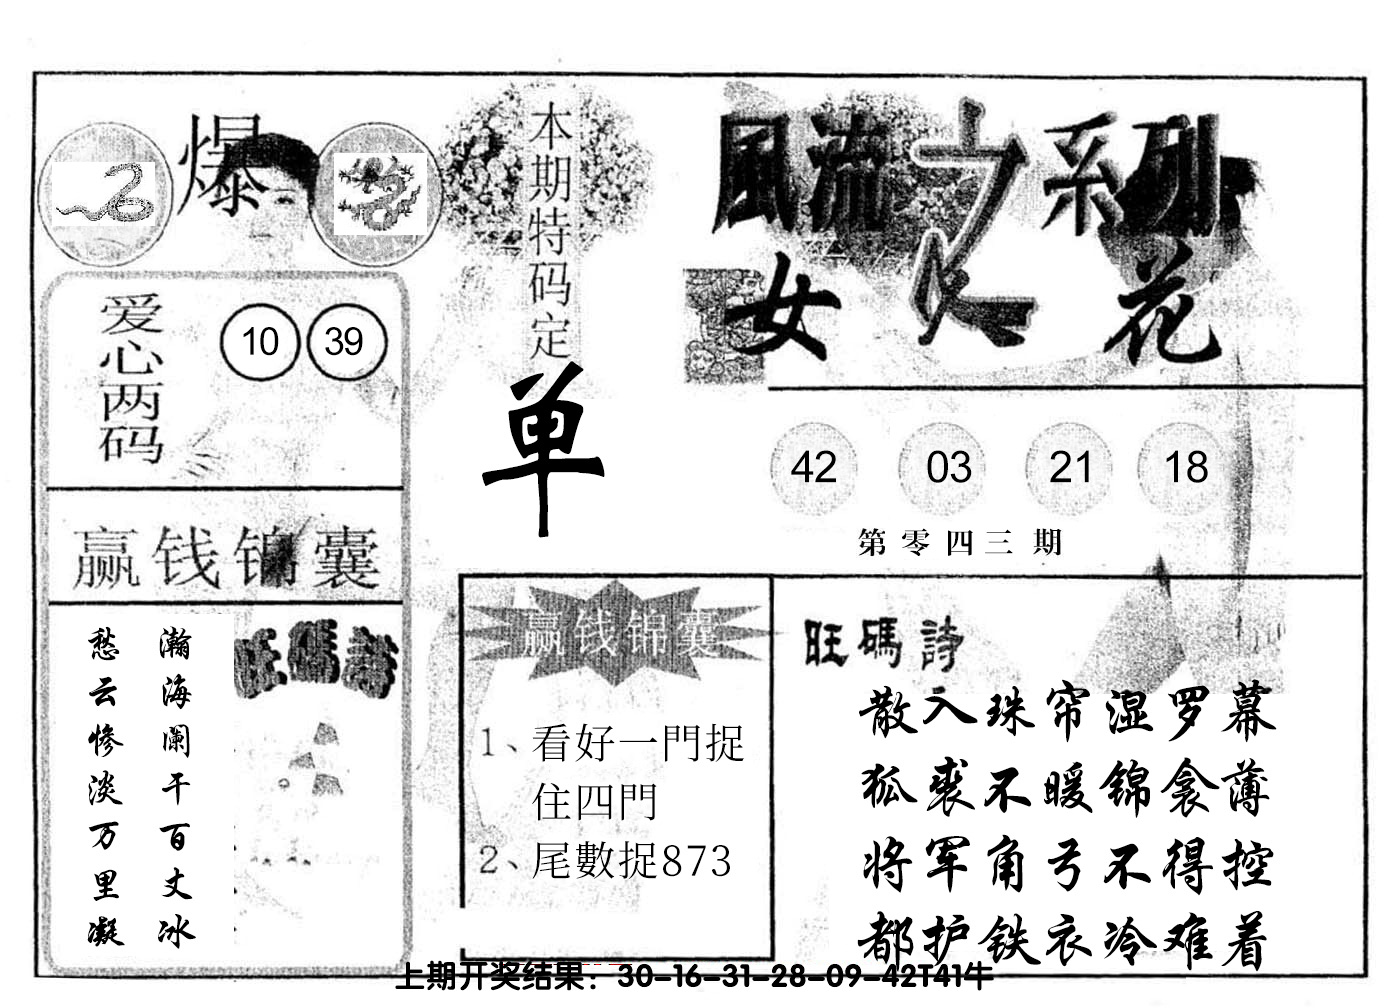 爆
本期特码定
单
風流之系列
女人花
爱心两码
10 39
42 03 21 18
第零四三期
赢钱锦囊
瀚海阑干百丈冰
愁云惨淡万里凝
旺碼詩
赢钱锦囊
1、看好一門捉
住四門
2、尾數捉873
旺碼詩
散入珠帘湿罗幕
狐裘不暖锦衾薄
将军角弓不得控
都护铁衣冷难着
上期开奖结果：30-16-31-28-09-42T41牛